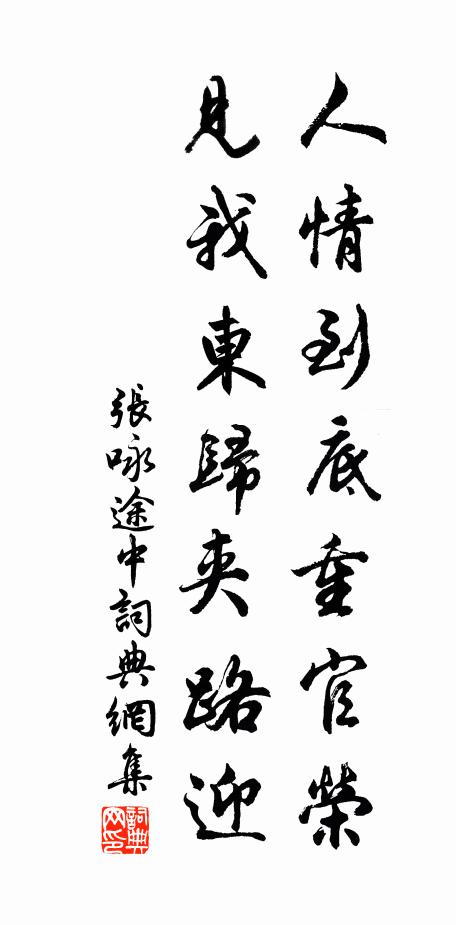 人情到底重官榮
見我東歸夾路迎
張咏途中詞典網集
詞典网印